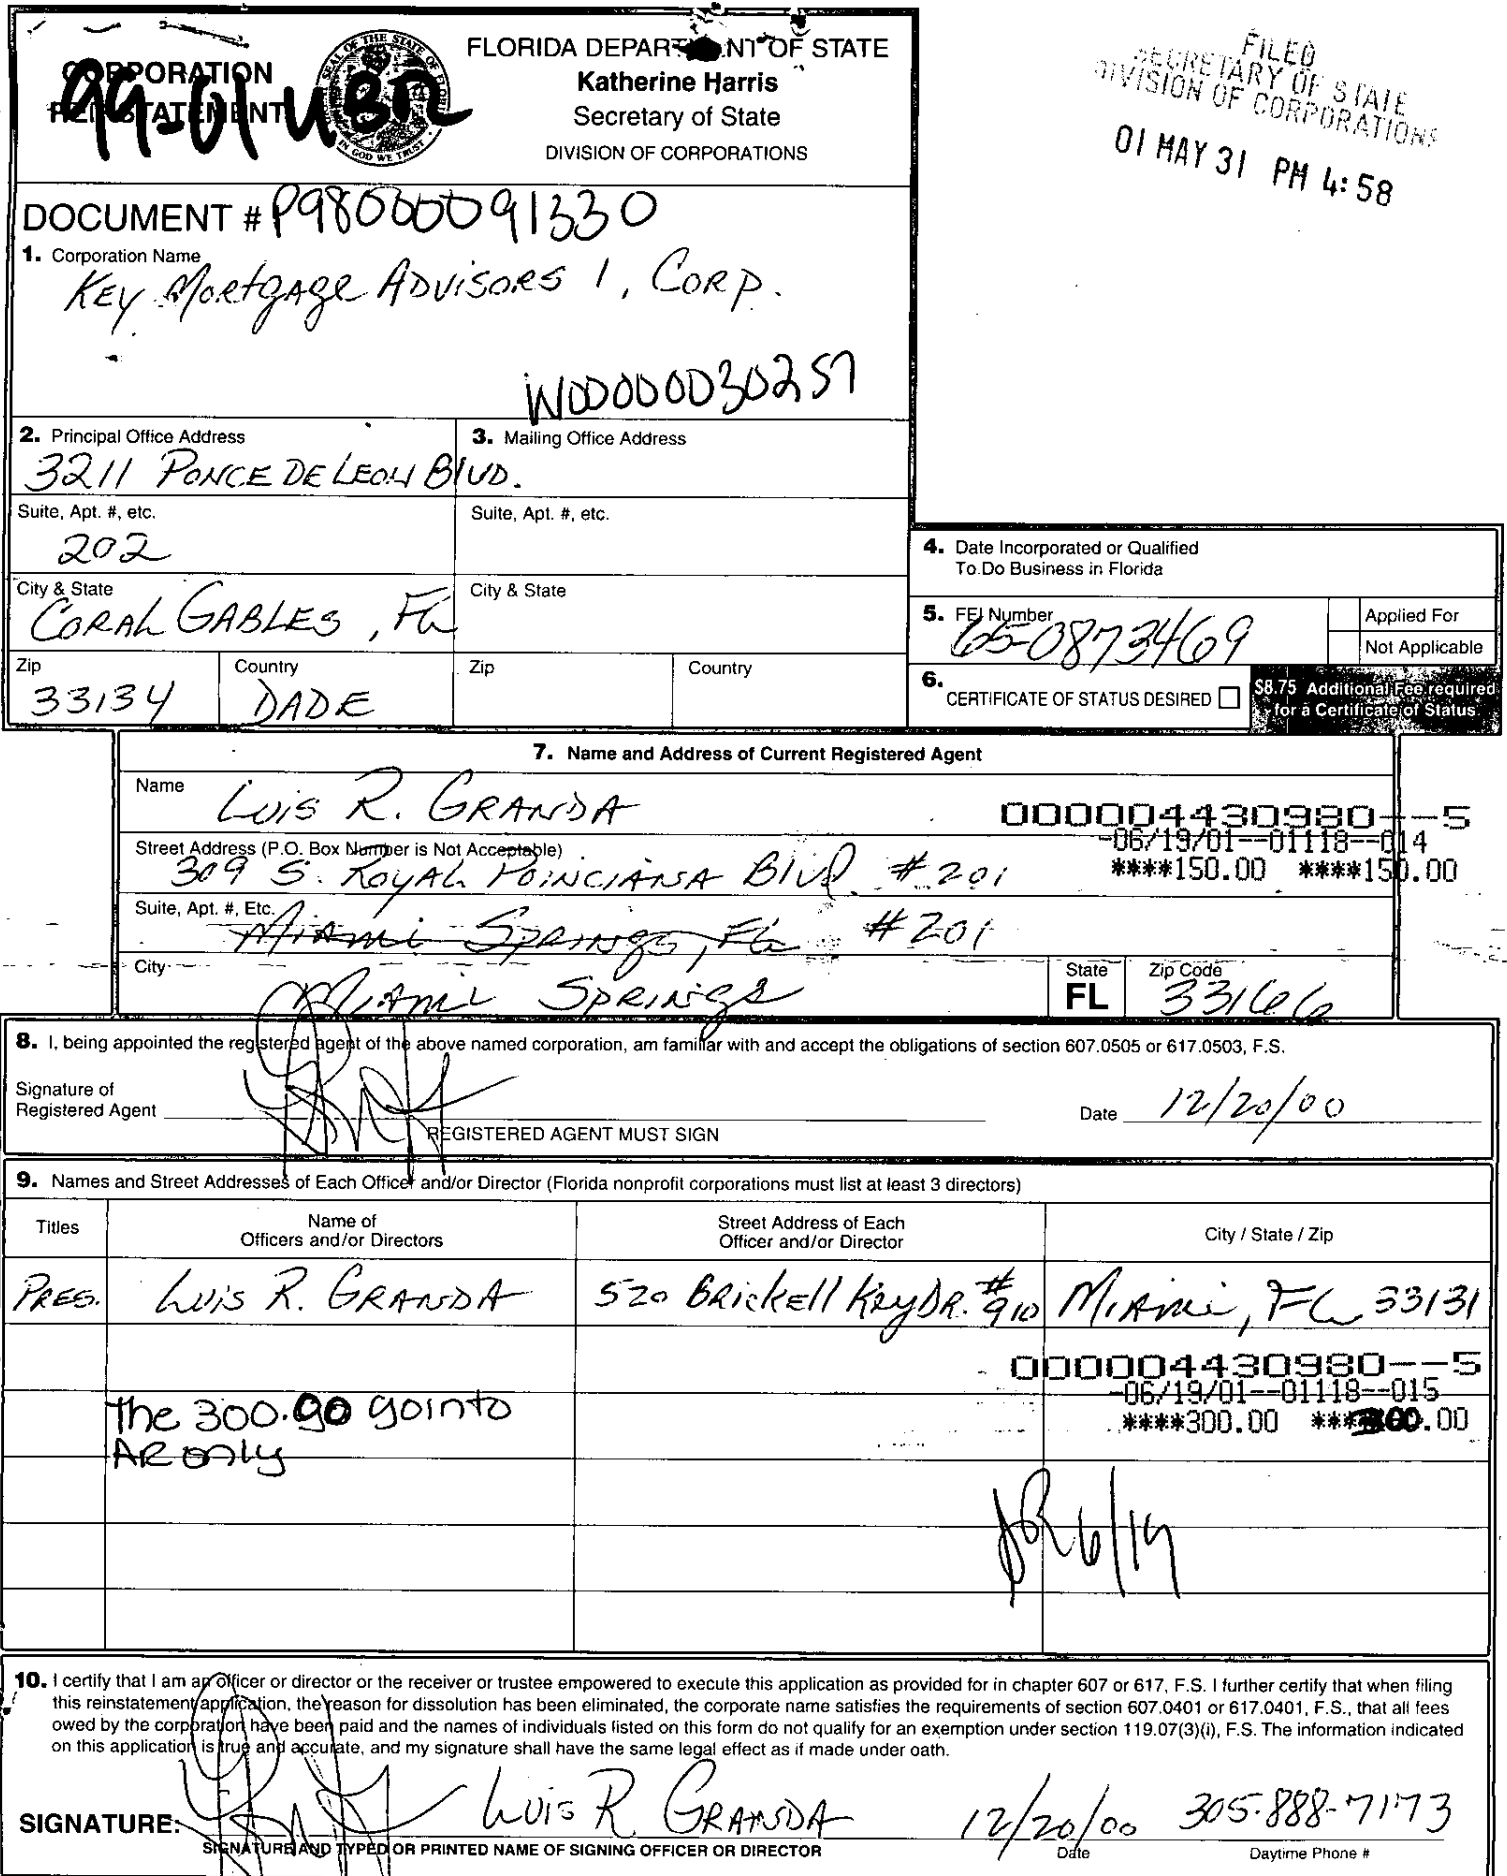 CORPORATION
REINSTATEMENT
99-01 UBR
FLORIDA DEPARTMENT OF STATE
Katherine Harris
Secretary of State
DIVISION OF CORPORATIONS
FILED
SECRETARY OF STATE
DIVISION OF CORPORATIONS
01 MAY 31 PM 4:58
DOCUMENT # P98000091330
1. Corporation Name
KEY MORTGAGE ADVISORS 1, CORP.
W00000030257
2. Principal Office Address
3211 PONCE DE LEON BLVD.
3. Mailing Office Address
Suite, Apt. #, etc.
202
Suite, Apt. #, etc.
City & State
CORAL GABLES, FL
City & State
Zip
33134
Country
DADE
Zip
Country
4. Date Incorporated or Qualified
To Do Business in Florida
5. FEI Number
65-0873469
Applied For
Not Applicable
6. CERTIFICATE OF STATUS DESIRED
$8.75 Additional Fee required
for a Certificate of Status
7. Name and Address of Current Registered Agent
Name
LUIS R. GRANDA
000004430980--5
-06/19/01--01118--014
****150.00 ****150.00
Street Address (P.O. Box Number is Not Acceptable)
309 S. ROYAL POINCIANA BLVD. #201
Suite, Apt. #, Etc.
MIAMI SPRINGS, FL #201
City
MIAMI SPRINGS
State
FL
Zip Code
33166
8. I, being appointed the registered agent of the above named corporation, am familiar with and accept the obligations of section 607.0505 or 617.0503, F.S.
Signature of
Registered Agent
REGISTERED AGENT MUST SIGN
Date 12/20/00
9. Names and Street Addresses of Each Officer and/or Director (Florida nonprofit corporations must list at least 3 directors)
Titles
Name of
Officers and/or Directors
Street Address of Each
Officer and/or Director
City / State / Zip
PRES. LUIS R. GRANDA 520 BRICKELL KEY DR. #910 MIAMI, FL 33131
000004430980--5
-06/19/01--01118--015
****300.00 ****300.00
The 300.00 go into
AR only
6/19
10. I certify that I am an officer or director or the receiver or trustee empowered to execute this application as provided for in chapter 607 or 617, F.S. I further certify that when filing
this reinstatement application, the reason for dissolution has been eliminated, the corporate name satisfies the requirements of section 607.0401 or 617.0401, F.S., that all fees
owed by the corporation have been paid and the names of individuals listed on this form do not qualify for an exemption under section 119.07(3)(i), F.S. The information indicated
on this application is true and accurate, and my signature shall have the same legal effect as if made under oath.
SIGNATURE: LUIS R GRANDA 12/20/00 305-888-7173
SIGNATURE AND TYPED OR PRINTED NAME OF SIGNING OFFICER OR DIRECTOR
Date
Daytime Phone #